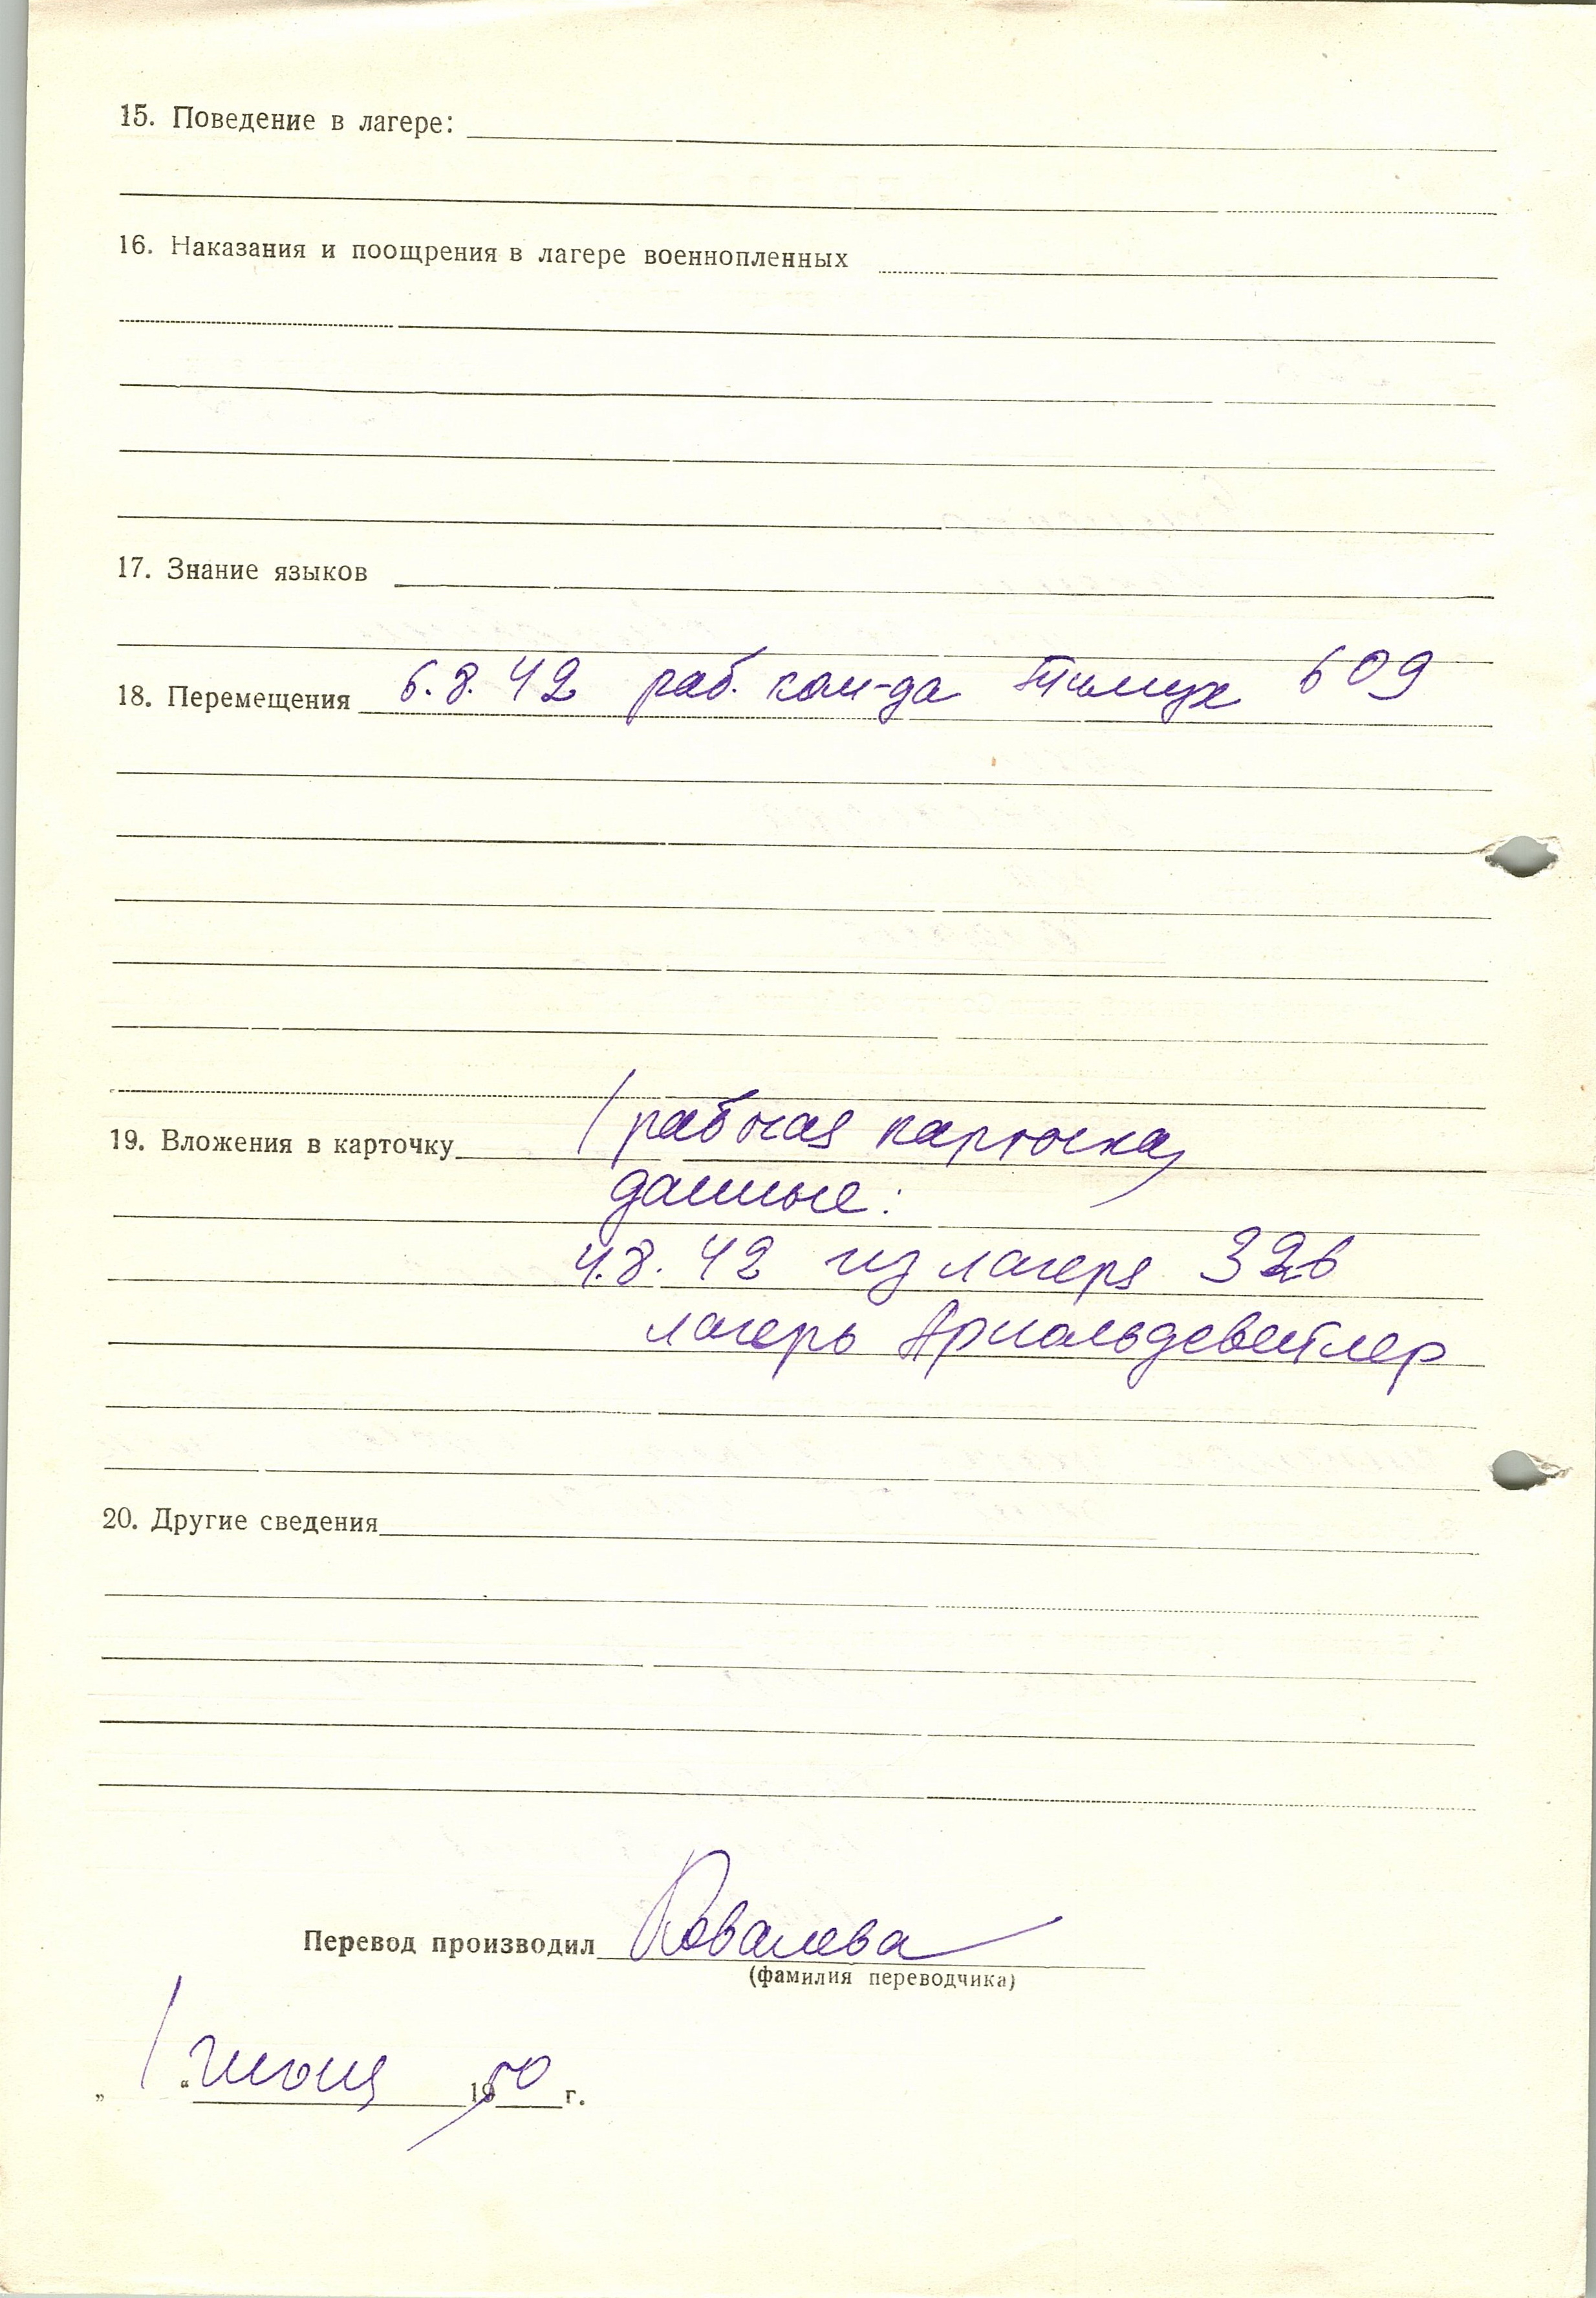 15. Поведение в лагере:
16. Наказания и поощрения в лагере военнопленных
17. Знание языков
18. Перемещения 6.8.42 раб. ком-да 609
19. Вложения в карточку 1 рабочая карточка,
данные:
4.8.42 из лагеря 326
лагерь Арнольдсвейлер
20. Другие сведения
Перевод производил Ковалева
(фамилия переводчика)
„ 1 “ июня 1950 г.